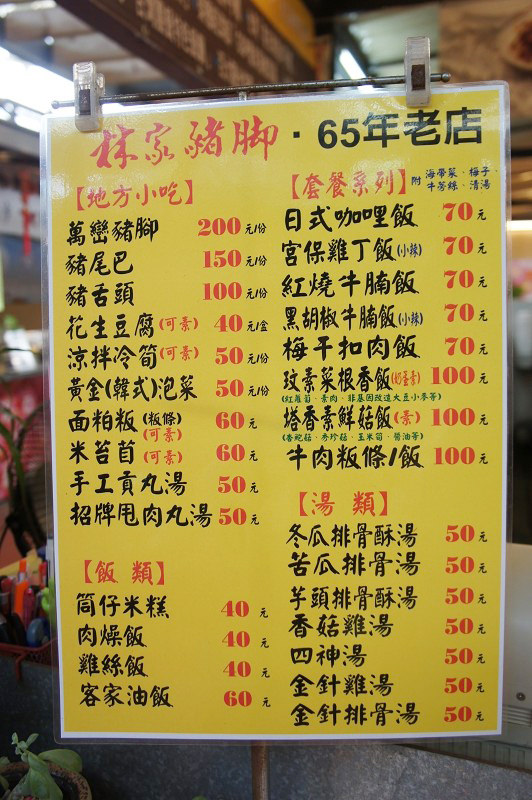 林家豬脚・65年老店
【地方小吃】
萬巒豬腳 200元/份
豬尾巴 150元/份
豬舌頭 100元/份
花生豆腐(可素) 40元/盒
涼拌冷筍(可素) 50元/份
黃金(韓式)泡菜 50元/份
面粕粄(粄條)(可素) 60元
米苔苜(可素) 60元
手工貢丸湯 50元
招牌甩肉丸湯 50元
【飯類】
筒仔米糕 40元
肉燥飯 40元
雞絲飯 40元
客家油飯 60元
【套餐系列】附海帶菜、梅子、
牛蒡絲、清湯
日式咖哩飯 70元
宮保雞丁飯(小辣) 70元
紅燒牛腩飯 70元
黑胡椒牛腩飯(小辣) 70元
梅干扣肉飯 70元
玟素菜根香飯(奶蛋素) 100元
(紅蘿蔔、素肉、非基因改造大豆小麥等)
塔香素鮮菇飯(素) 100元
(香鮑菇、秀珍菇、玉米筍、醬油等)
牛肉粄條/飯 100元
【湯類】
冬瓜排骨酥湯 50元
苦瓜排骨湯 50元
芋頭排骨酥湯 50元
香菇雞湯 50元
四神湯 50元
金針雞湯 50元
金針排骨湯 50元